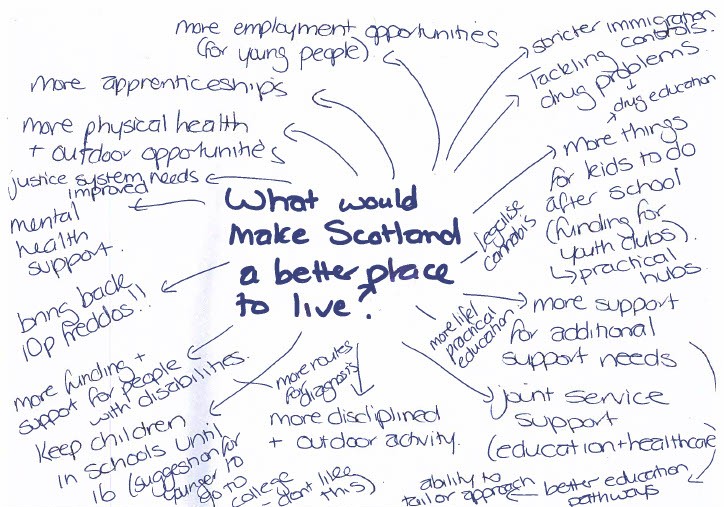 more employment opportunities
(for young people).
more apprenticeships
more physical health
+ outdoor opportunities
justice system needs
improved
mental
health
support.
bring back
10p freddos!!
more funding +
support for people
with disabilities.
more routes
for diagnosis
Keep children
in schools until
16 (suggestion for
younger to
go to
college
- dont like
this)
What would
make Scotland
a better place
to live?
stricter immigration
controls.
Tackling
drug problems.
drug education
More things
for kids to do
after school
(funding for
youth clubs).
practical
hubs.
legalise
cannabis
more life/
practical
education
more support
for additional
support needs
joint service
support
(education+healthcare)
better education
pathways
ability to
tailor approach
more disciplined
+ outdoor activity.